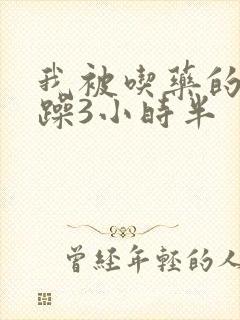 我被喫藥的
躁3小時半
曾經年輕的人